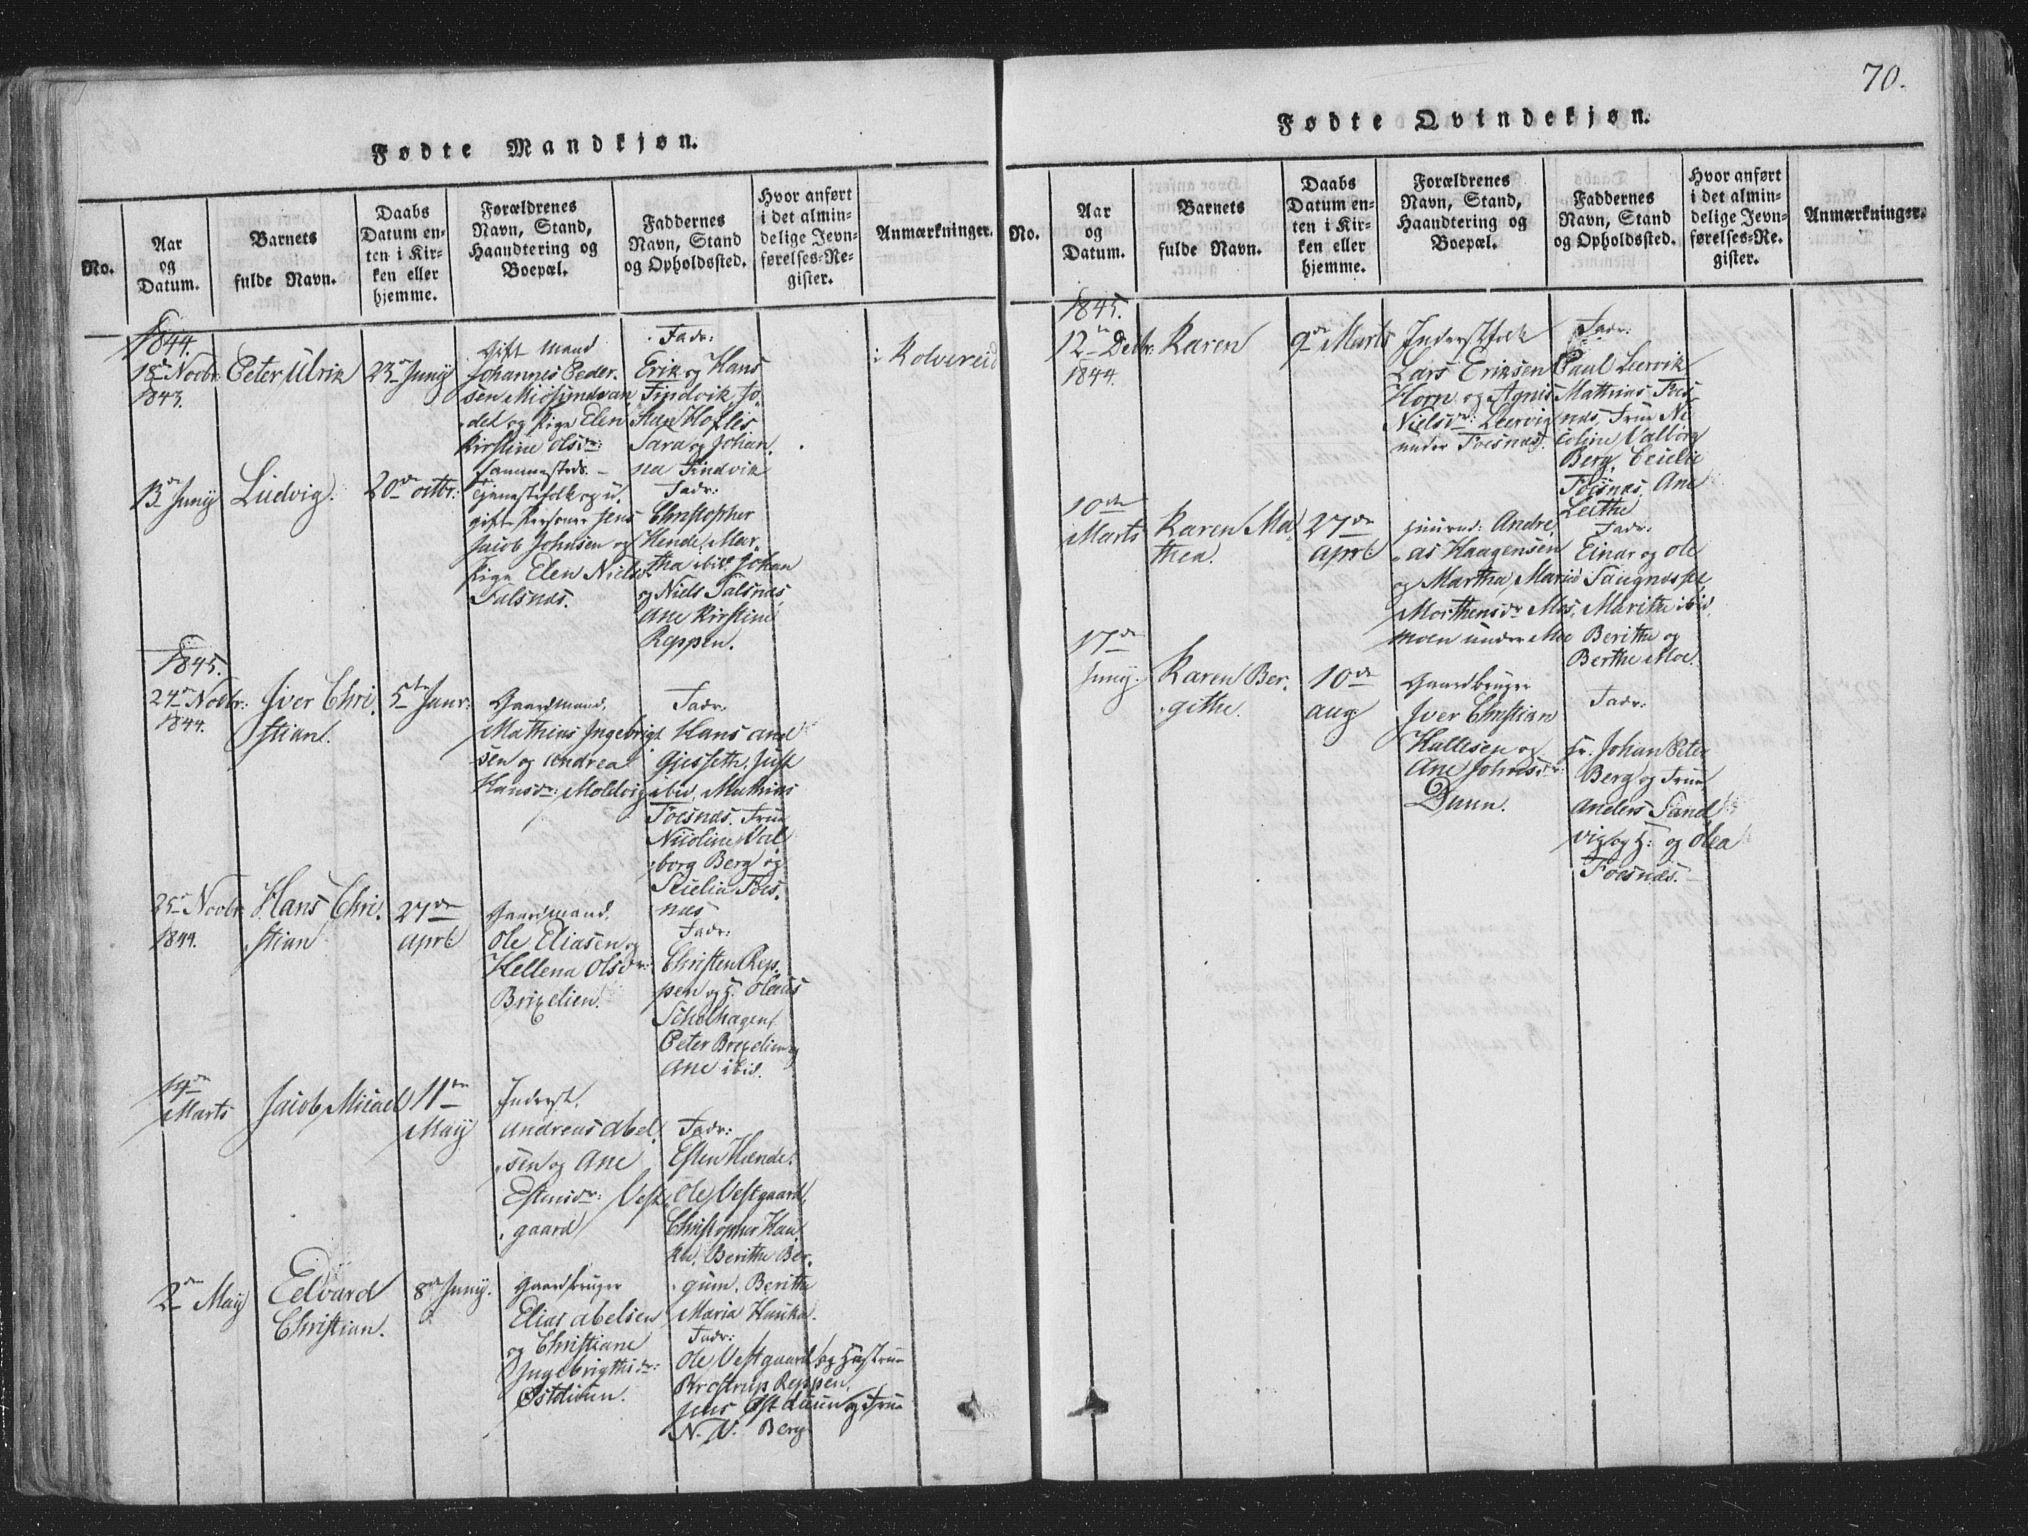 Fødte Mandkjøn.
No.
Aar
og
Datum.
Barnets
fulde Navn.
Daabs
Datum en-
ten i Kir-
ken eller
hjemme.
Forældrenes
Navn, Stand,
Haandtering og
Boepæl.
Faddernes
Navn, Stand
og Opholdssted.
Hvor anført
i det almin-
delige Jevn-
førelses-Re-
gister.
Anmærkninger.
1844.
18de Novbr:
1843.
Peter Ulrik
23de Junij
Gift Mand
Johannes Peder-
sen
og Pige Elen
Kirstine Olsdr:
sammesteds.
Fadr:
Erik og Hans
Findvik, Jo-
Hofles
Sara og Johan-
na Findvik
i Kolvereid
13de Junij
Ludvig.
20de octbr:
Tjenestefolk og u-
gift Personer Jens
Jacob Johnsen og
Pige Elen Nielsdr
Salsnæs.
Fadr:
Christopher
Hende, Mar-
tha ibid Johan
og Niels Salsnæs,
Ane Kirstine
Reppen.
1845.
24de Novbr:
1844.
Iver Chri-
stian.
5te Janr:
Gaardmand.
Mathius Ingebrigt
sen og Andrea
Hansdr: Moldvig
Fadr:
Hans and
Gjesseth, Just
ibid, Mathias
Foesnæs. Frue
Nicoline Val
borg Berg og
Cicilia Foes-
næs
25de Novbr
1844.
Hans Chri-
stian
27de
Aprl
Gaardmand.
Ole Eliasen og
Hellena Olsdr:
Brixelien.
Fadr:
Christen Rep-
pen og H. Oleaus
Scholhagen,
Peter Brexelien og
Ane ibid.
14de
Marts
Jacob Micael
11te
Maij
Inderst.
Andreas Abel-
sen og Ane
Estensdr: Vest-
gaard
Fadr:
Esten Hænde.
Ole Vestgaard,
Christopher Hau-
ka, Berithe Ber-
gum. Berithe
Maria Hauka.
2de Maij
Edvard
Christian.
8de Junij.
Gaardbruger
Elias Abelsen
og Christiane
Ingebrigthsdr:
Østduun.
Fadr:
Ole Vestgaard og Hustrue
Reppen,
Jens Østduun og Frue
N. N. Berg
70.
Fødte Qvindekjøn.
No.
Aar
og
Datum.
Barnets
fulde Navn.
Daabs
Datum en-
ten i Kir-
ken eller
hjemme.
Forældrenes
Navn, Stand,
Haandtering og
Boepæl.
Faddernes
Navn, Stand
og Opholdssted.
Hvor anført
i det almin-
delige Jevn-
førelses-Re-
gister.
Anmærkninger.
1845.
12te Decbr.
1844.
Karen
9de Marts
Inderstfolk
Lars Eriksen
Horn og Agnis
Nielsdr: Leervig
under Foesnæs.
Fadr:
Paul Leervik
Mathias Foes-
næs, Frue Ni-
coline Valborg
Berg, Cecilie
Foesnæs, Ane
Leithe
10de
Marts
Karen Ma-
thea.
27de
Aprl
Andre-
as Haagensen
og Martha Maria
Morthensdr Moe,
moen under Moe
Fadr:
Einar og Ole
Saugnæsset
Marithe ibid,
Berithe og
Berthe Moe.
17de
Junij.
Karen Ber-
githe.
10de
aug
Gaardbruger
Iver Christian
Hallesen og
Ane Johnsdr:
Duun.
Fadr:
Hr. Johan Peter
Berg og Frue
Anders Sand
vig og H: og Olea
Foesnæs.